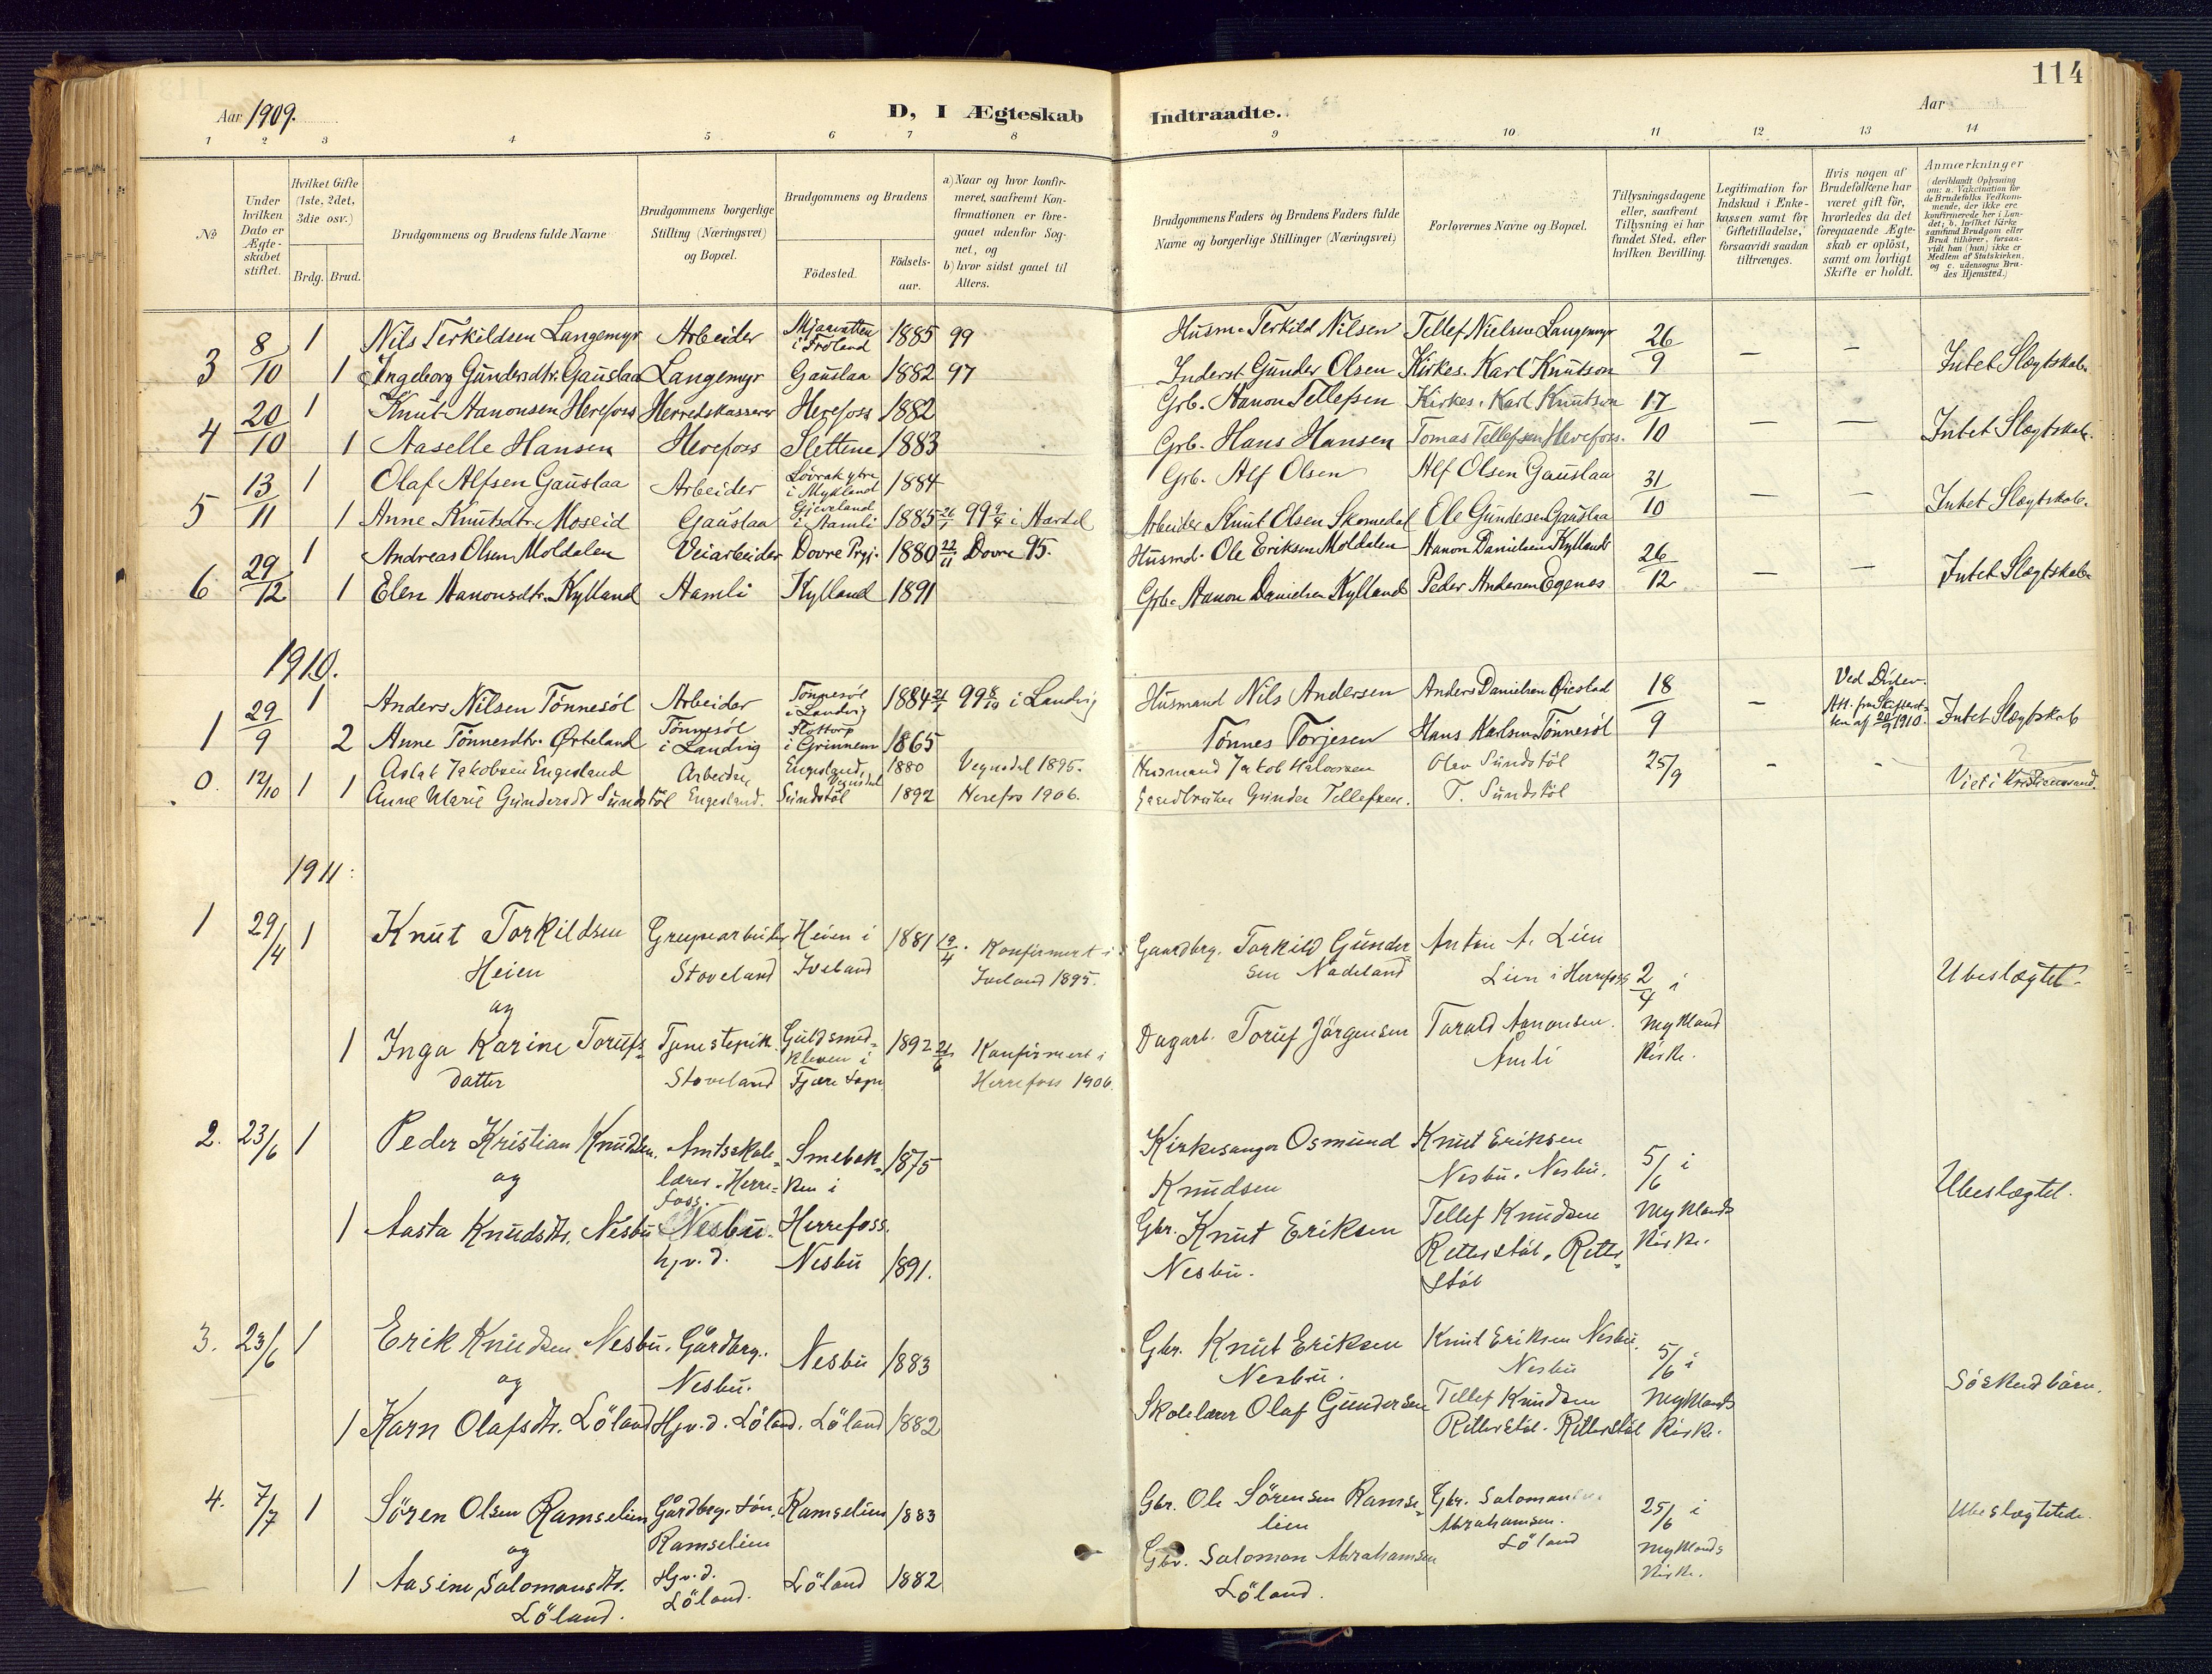 114
Aar 1909.
D, I Ægteskab Indtraadte.
Aar
1 2 3 4 5 6 7 8 9 10 11 12 13 14
No
Under hvilken Dato er Ægteskabet stiftet.
Hvilket Gifte (1ste, 2det, 3die osv.)
Brdg. Brud.
Brudgommens og Brudens fulde Navne
Brudgommens borgerlige Stilling (Næringsvei) og Bopæl.
Brudgommens og Brudens
Födested. Födsels-aar.
a) Naar og hvor konfirmeret, saafremt Konfirmationen er foregaaet udenför Sognet, og
b) hvor sidst gaaet til Alters.
Brudgommens Faders og Brudens Faders fulde Navne og borgerlige Stillinger (Næringsvei)
Forlovernes Navne og Bopæl.
Tillysningsdagene eller, saafremt Tillysning ei har fundet Sted, efter hvilken Bevilling.
Legitimation for Indskud i Enkekassen samt for Giftetilladelse, forsaavidt saadan tiltrænges.
Hvis nogen af Brudefolkene har været gift för, hvorledes da det foregaaende Ægteskab er oplöst, samt om lovligt Skifte er holdt.
Anmærkninger (deriblandt Oplysning om: a. Vakcination for de Brudefolks Vedkommende, der ikke ere konfirmerede her i Landet; b. hvilket Kirkesamfund Brudgom eller Brud tilhörer, forsaavidt han (hun) ikke er Medlem af Statskirken, og c. udensogns Brudes Hjemsted.)
3 8/10 1 Nils Terkildsen Langemyr Arbeider Mjaavatten i Froland 1885 99 Husm. Terkild Nilsen Tellef Nielsen Langemyr 26/9 — — Intet Slægtskab.
1 Ingeborg Gundersdtr. Gauslaa Langemyr Gauslaa 1882 97 Inderst Gunder Olsen Kirkes. Karl Knutson
4 20/10 1 Knut Aanonsen Herefoss Herredskasserer Herefoss 1882 Grb. Aanon Tellefsen Kirkes. Karl Knutson 17/10 — — Intet Slægtskab.
1 Aaselle Hansen Herefoss Slettene 1883 Grb. Hans Hansen Tomas Tellefsen Herefoss.
5 13/11 1 Olaf Alfsen Gauslaa Arbeider Lövrak ytre i Mykland 1884 Grb. Alf Olsen Alf Olsen Gauslaa 31/10 — — Intet Slægtskab.
1 Anne Knutsdtr. Moseid Gauslaa i Aamli 1885 99 i Aardal Arbeider Knut Olsen Ole Gundersen Gauslaa
6 29/12 1 Andreas Olsen Moldalen Veiarbeider Dovre Prgj. 1880 22/11 Dovre 95. Husmd. Ole Eriksen Moldalen Aanon Danielsen Kylland 26/12 — — Intet Slægtskab.
1 Elen Aanonsdtr. Kylland Aamli Kylland 1891 Grb. Aanon Danielsen Kylland Peder Andersen Egenes
1910.
1 29/9 1 Anders Nilsen Tönnesöl Arbeider Tönnesöl i Landvig 1884 99 8/10 i Landvig Husmand Nils Andersen Anders Danielsen Øiestad 18/9 — Ved Döden. Att. fra Skifteretten af 20/9 1910. Intet Slægtskab
2 Anne Tönnesdtr. Ørteland Tönnesöl i Landvig 1865 Tönnes Torjesen Hans Karlsen Tönnesöl
0. 12/10 1 Aslak Jakobsen Engesland Arbeider Engesland, Vegusdal 1880 Vegusdal 1895. Husmand Jakob Halvorsen Olav Sundstöl 25/9 - - ?
1 Anne Marie Gundersdt Sundstöl Engesland. Sundstöl 1892 Herefos 1906. Gaardbruker Gunder Tellefsen. T. Sundstöl Viet i Kristianssand.
1911:
1 29/4 1 Knut Torkildsen Grupearbeider Heien i 1881 19/4. Konfirmert i Gaardbrg. Torkild Gunder- Anton A. Lien
Heien Stoveland Iveland Iveland 1895. sen Nadeland Lien i Herrefoss 2/4 i Ubeslægtet.
og
1 Inga Karine Torufs- Tjenestepik. Guldsmed- 1892 Konfirmert i Dagarb. Toruf Jörgensen Tarald Aanonsen. Mykland
datter Stoveland kleven i Fjære sogn Herrefoss 1906. Amli kirke.
2. 23/6 1 Peder Kristian Knudsen. Amtsskole- Smebak- 1875 Kirkesanger Osmund Knut Eriksen 5/6 i
og lærer. Herrefoss. ken i Knudsen Nesbu. Nesbu. Ubeslægtet.
1 Aasta Knudsdtr. Nesbu Nesbu. Herrefoss. Gbr. Knut Eriksen Tellef Knudsen Myklands
hjv. d. Nesbu 1891. Nesbu. Retterstöl, Retterstöl kirke.
3. 23/6 1 Erik Knudsen Nesbu. Gårdbrg. Nesbu 1883 Gbr. Knut Eriksen Knut Eriksen Nesbu. 5/6 i
og Nesbu. Nesbu. Nesbu Söskendbörn.
1 Karn Olafsdtr. Löland Hjv. d. Löland. Löland 1882 Skolelærer Olaf Gundersen Tellef Knudsen Myklands
Ritterstöl. Ritterstöl kirke.
4. 7/7 1 Sören Olsen Ramselien Gårdbrg. sön. Ramselien 1883 Gbr. Ole Sörensen Ramse- Gbr. Salomon 25/6 i Ubeslægtede.
og Ramselien lien Abrahamsen. Löland Myklands
1 Aasine Salomonsdtr. Hjv. d. Löland 1882 Gbr. Salomon Abrahamsen kirke.
Löland. Löland. Löland.